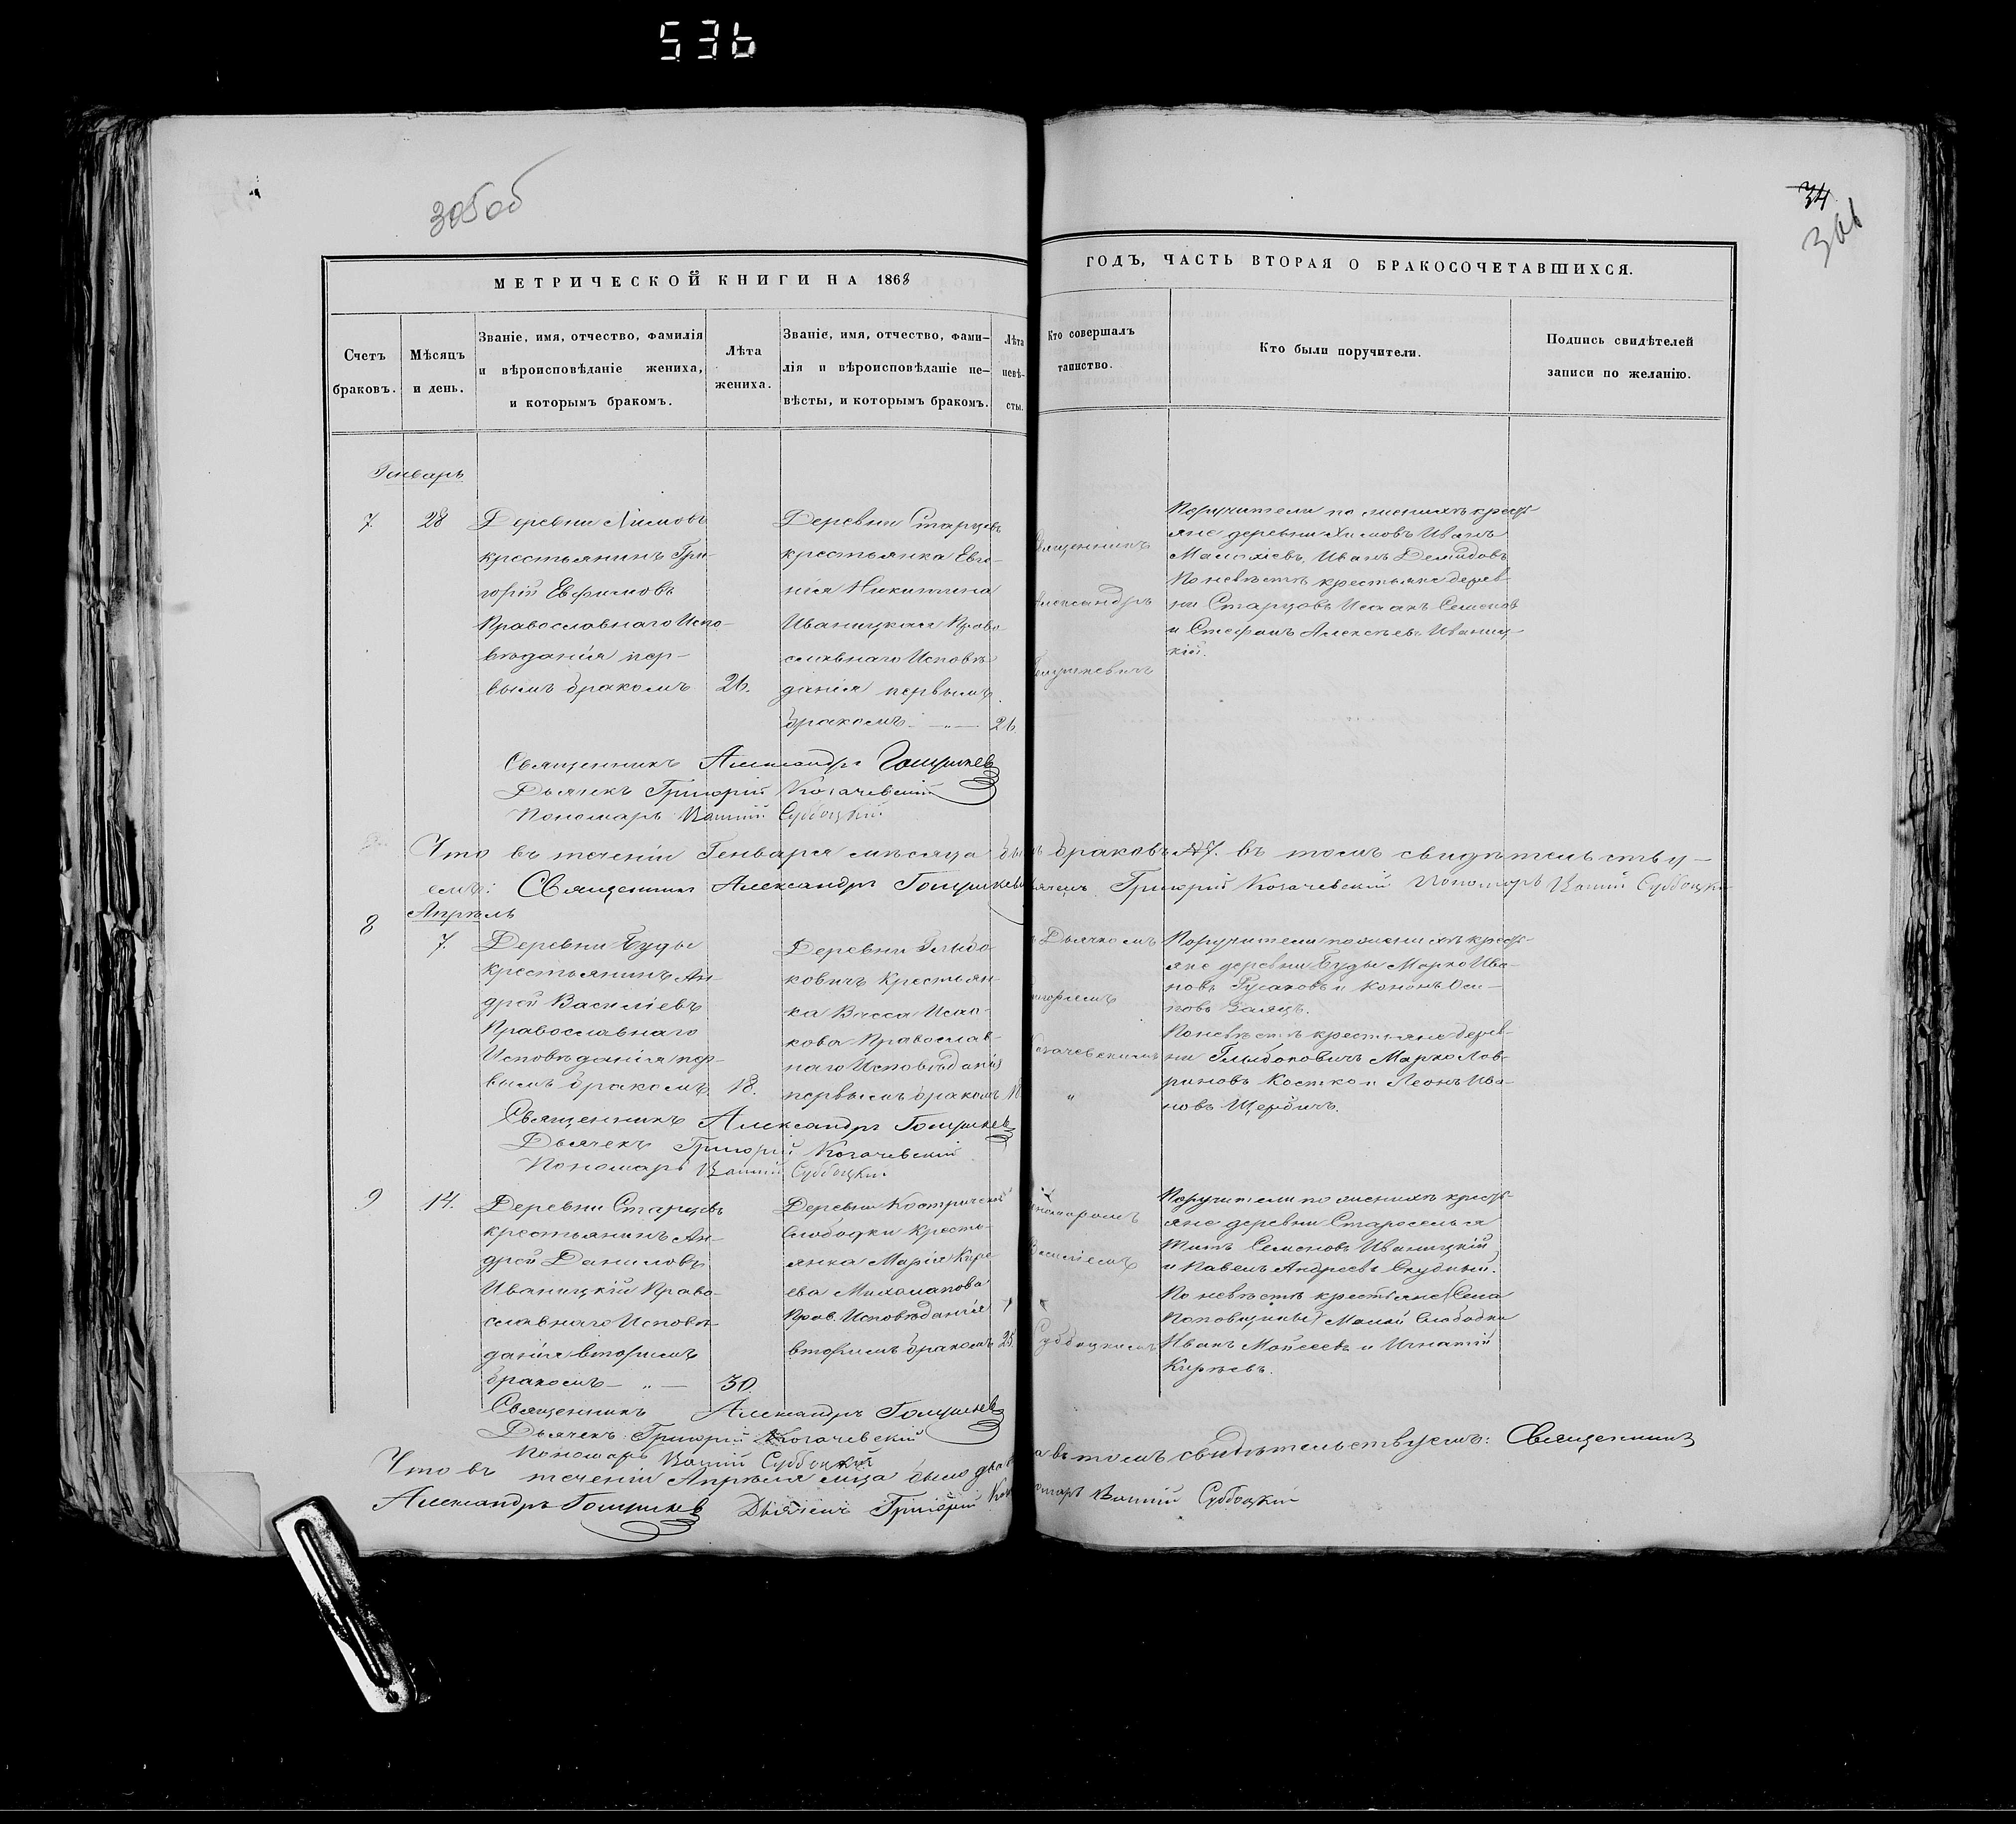 536
305об
34
306
МЕТРИЧЕСКОЙ КНИГИ НА 1868
ГОДЪ, ЧАСТЬ ВТОРАЯ О БРАКОСОЧЕТАВШИХСЯ.
Счетъ
браковъ.
Мѣсяцъ
и день.
Званіе, имя, отчество, фамилія
и вѣроисповѣданіе жениха,
и которымъ бракомъ.
Лѣта
жениха.
Званіе, имя, отчество, фами-
лія и вѣроисповѣданіе не-
вѣсты, и которымъ бракомъ.
Лѣта
невѣ-
сты.
Кто совершалъ
таинство.
Кто были поручители.
Подпись свидѣтелей
записи по желанію.
Генварь
7.
28
Деревни Химовъ
крестьянинъ Гри-
горій Евфимовъ
Православнаго Испо-
вѣданія пер-
вымъ бракомъ
26.
Деревни Старцовъ
крестьянка Евге-
нія Никитина
Иваницкая Право-
славнаго Исповѣ-
данія первымъ
бракомъ
Священникъ
Александръ
Поручители по женихѣ кресть-
яне деревни Химовъ Иванъ
Иванъ Демидовъ
По невѣстѣ крестьяне дерев-
ни Старцовъ Исаакъ Семеновъ
и Стефанъ Алексѣевъ Иваниц-
кій.
Священникъ Александръ
Дьячекъ Григорій
Пономарь Суббоцкій
Что въ теченіи Генваря мѣсяца браковъ 7. въ томъ свидѣтельству-
емъ: Священникъ Александръ Григорій Пономарь Суббоцкій
Апрѣль
8
7.
Деревни Буды
крестьянинъ Ан-
дрей Василіевъ
Православнаго
Исповѣданія пер-
вымъ бракомъ
18.
Деревни Глыбо-
ковичъ крестьян-
ка Васса Исаа-
кова Православ-
наго Исповѣданія
первымъ бракомъ
Дьячкомъ
Поручители по женихѣ кресть-
яне деревни Буды Марко Ива-
новъ Гусаковъ и Кононъ Оси-
повъ Заяцъ.
По невѣстѣ крестьяне дерев-
ни Глыбоковичъ Марко Лав-
риновъ Костко и Леонъ Ива-
новъ Щербичъ.
Священникъ Александръ
Дьячекъ Григорій
Пономарь Суббоцкій
9
14.
Деревни Старцовъ
крестьянинъ Ан-
дрей Даниловъ
Иваницкій Право-
славнаго Исповѣ-
данія вторымъ
бракомъ
30.
Деревни Костричской
Слободки кресть-
янка Марія Кире-
ева
Прав. Исповѣданія
вторымъ бракомъ 25.
Пономаромъ
Василіемъ
Суббоцкимъ
Поручители по женихѣ кресть-
яне деревни Староселья
Титъ Семеновъ Иваницкій
и Павелъ Андреевъ Скудный.
По невѣстѣ крестьяне Села
Поповщины Малой Слободки
Иванъ Мойсеевъ и Игнатій
Кирѣевъ.
Священникъ Александръ
Дьячекъ Григорій
Пономарь Суббоцкій
Что въ теченіи Апрѣля мца было два въ томъ свидѣтельствуемъ: Священникъ
Александръ Дьячекъ Григорій Суббоцкій